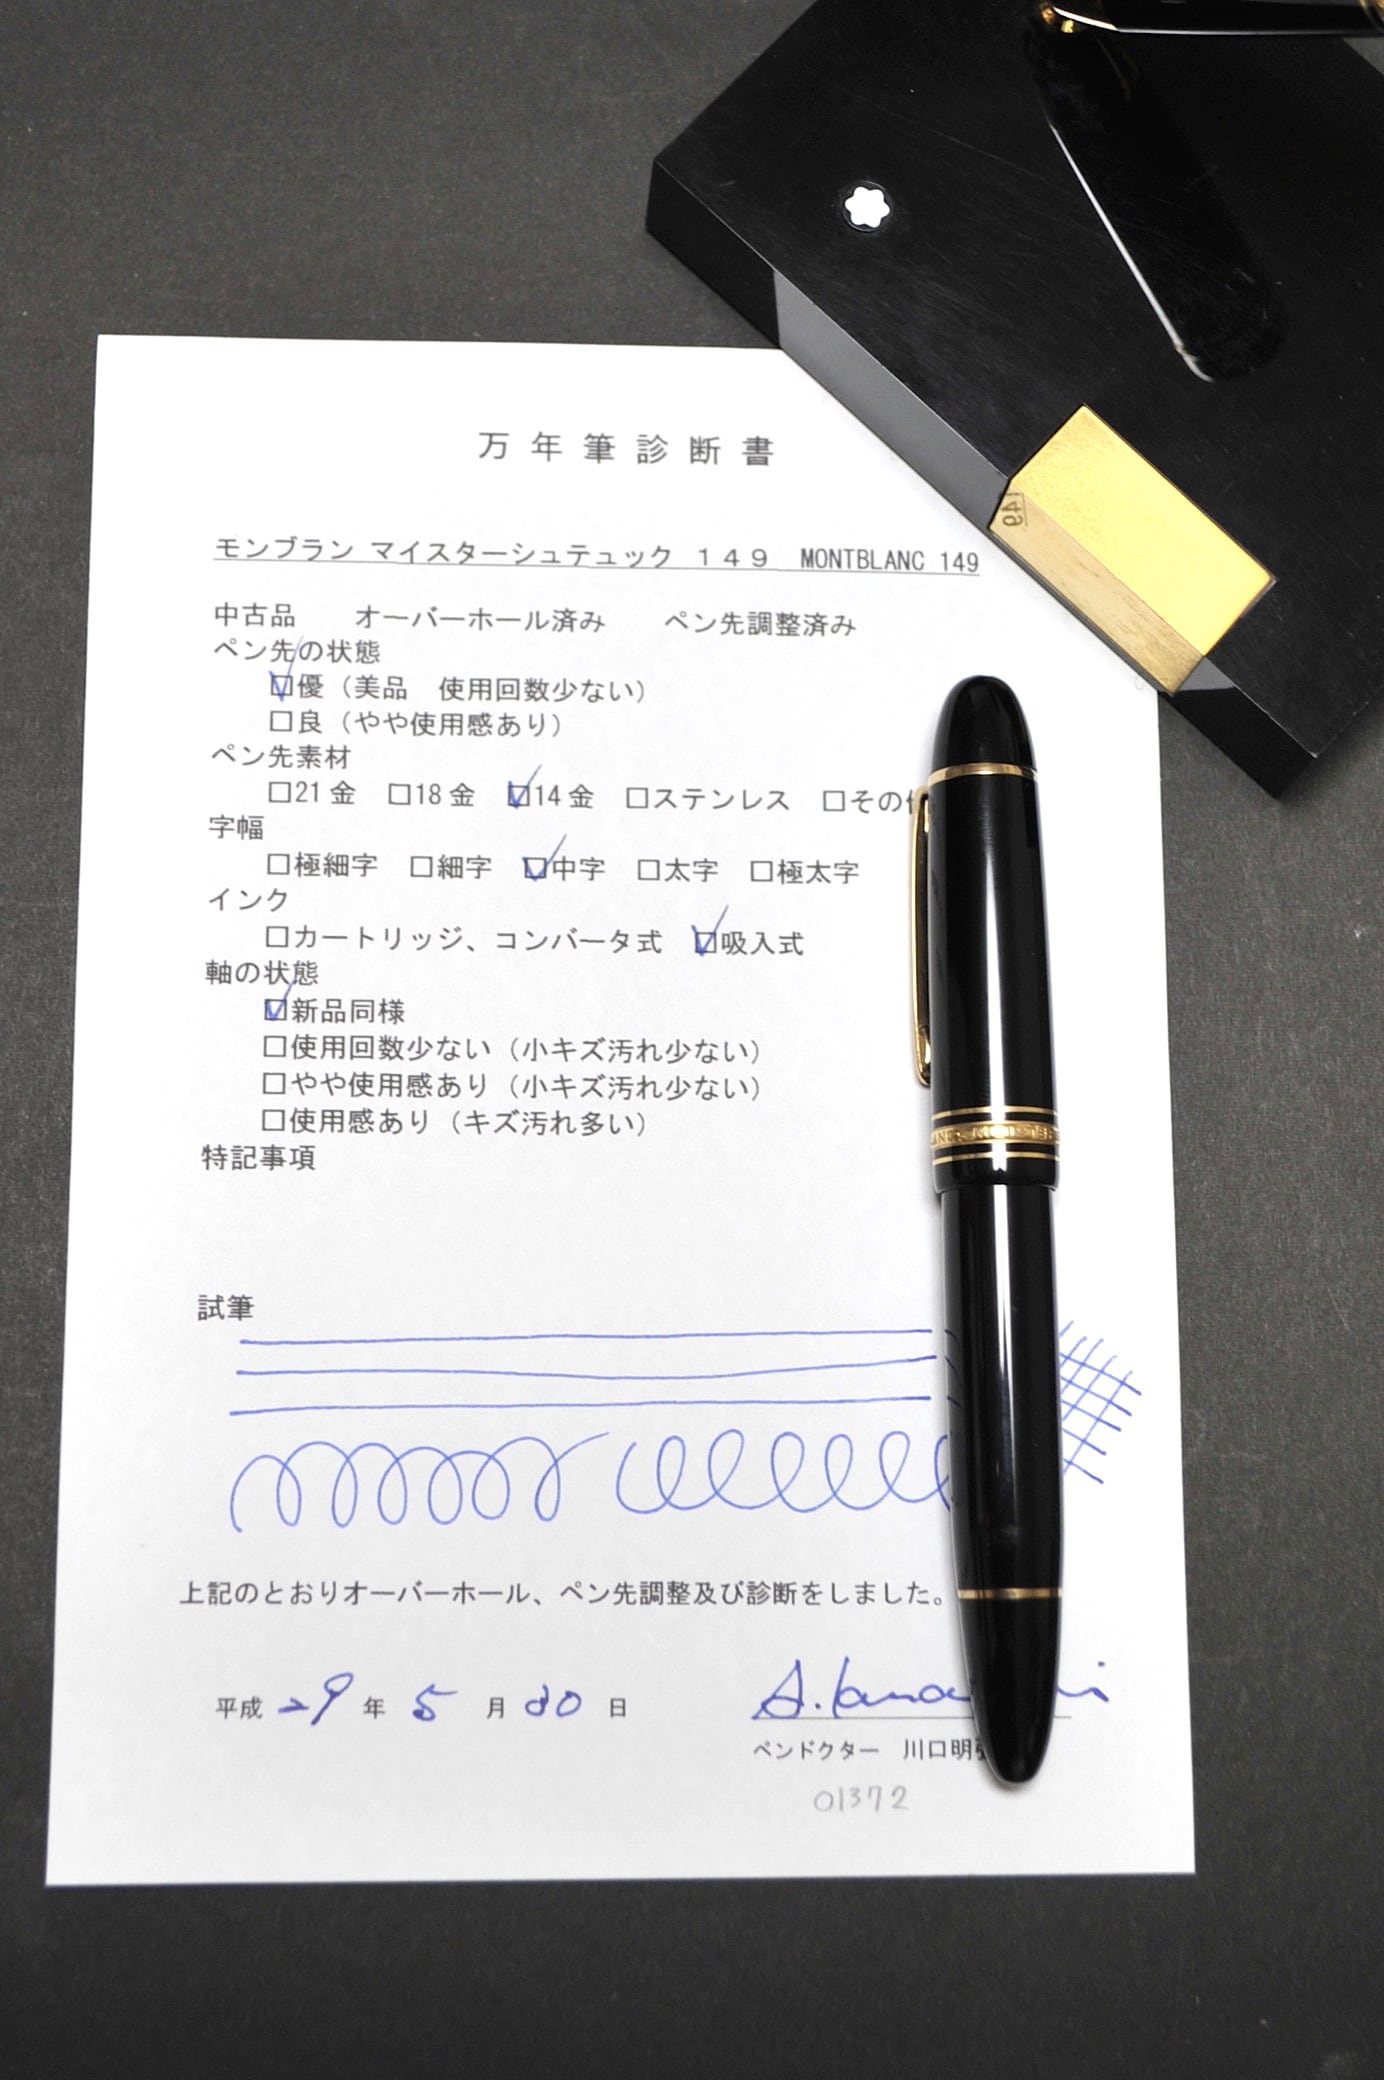 149
万年筆診断書
モンブラン マイスターシュテュック １４９ MONTBLANC 149
中古品 オーバーホール済み ペン先調整済み
ペン先の状態
☑優（美品 使用回数少ない）
□良（やや使用感あり）
ペン先素材
□21金 □18金 ☑14金 □ステンレス □その
字幅
□極細字 □細字 ☑中字 □太字 □極太字
インク
□カートリッジ、コンバータ式 ☑吸入式
軸の状態
☑新品同様
□使用回数少ない（小キズ汚れ少ない）
□やや使用感あり（小キズ汚れ少ない）
□使用感あり（キズ汚れ多い）
特記事項
試筆
上記のとおりオーバーホール、ペン先調整及び診断をしました。
平成 29 年 5 月 30 日
ペンドクター 川口明
01372